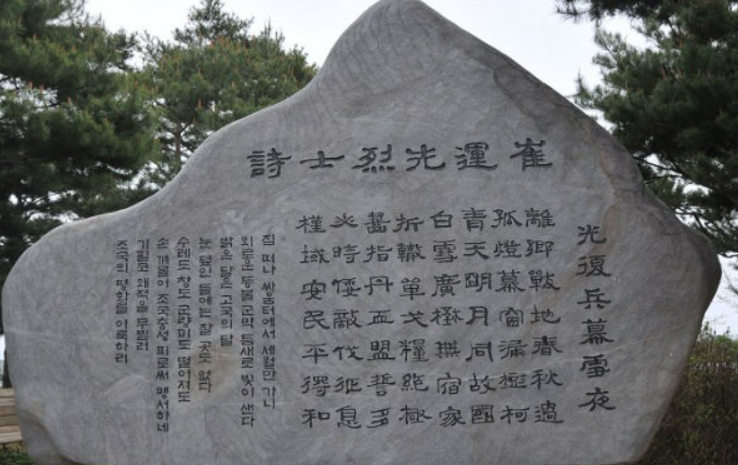 崔運先烈士詩
光復兵幕雪夜
離鄕戰地春秋過
孤燈幕窗漏極柯
靑天明月同故國
白雪廣極無宿家
折轍單戈糧絶極
指丹血盟誓多
必時倭敵伐征息
槿域安民平得和
집 떠나 싸움터에서 세월만 가니
외로운 등불 군막 틈새로 빛이 샌다
밝은 달은 고국의 달
눈 덮인 들에는 잘 곳도 없다
수레도 창도 군량미도 떨어져도
손 깨물어 조국충성 피로써 맹서하네
기필코 왜적을 무찔러
조국의 평화를 이룩하리